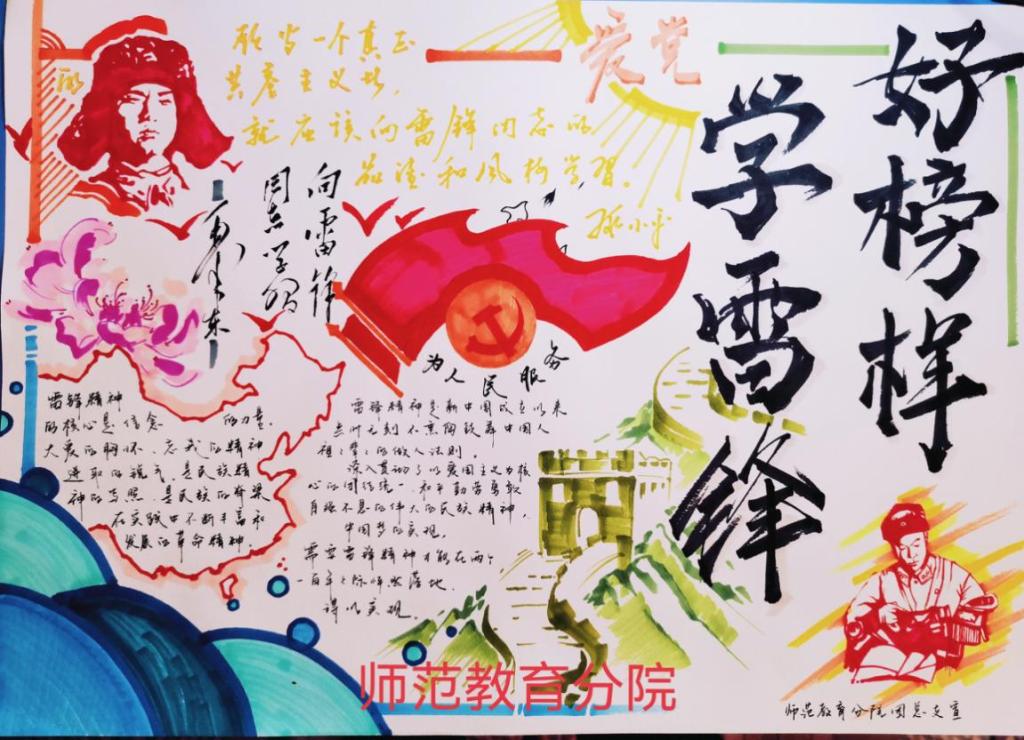 好榜样
学雷锋
爱党
愿当一个真正
共产主义者,
就应该向雷锋同志的
品德和风格学习。
邓小平
向雷锋
同志学习
毛泽东
为人民服务
雷锋精神
的核心是信念的力量.
大爱的胸怀、忘我的精神
进取的锐气,是民族精
神的写照,是民族的脊梁
在实践中不断丰富和
发展的革命精神.
雷锋精神是新中国成立以来
无时无刻不熏陶鼓舞中国人
的做人法则.
深入贯彻了以爱国主义为核
心的团结统一、和平勤劳勇敢
自强不息的伟大的民族精神,
中国梦的实现.
需要雷锋精神才能在两个
一百年之际 落地.
得以实现.
师范教育分院
师范教育分院团总支宣